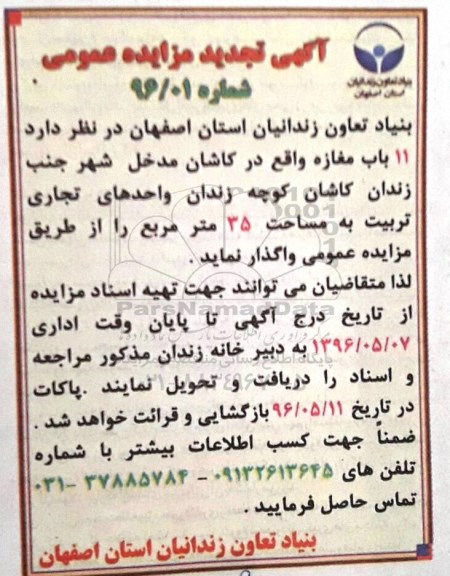 آگهی تجدید مزایده عمومی
شماره ۹۶/۰۱
بنیاد تعاون زندانیان
استان اصفهان
بنیاد تعاون زندانیان استان اصفهان در نظر دارد
۱۱ باب مغازه واقع در کاشان مدخل شهر جنب
زندان کاشان کوچه زندان واحدهای تجاری
تربیت به مساحت ۳۵ متر مربع را از طریق
مزایده عمومی واگذار نماید .
لذا متقاضیان می توانند جهت تهیه اسناد مزایده
از تاریخ درج آگهی تا پایان وقت اداری
۱۳۹۶/۰۵/۰۷ به دبیر خانه زندان مذکور مراجعه
و اسناد را دریافت و تحویل نمایند .پاکات
در تاریخ ۹۶/۰۵/۱۱ بازگشایی و قرائت خواهد شد .
ضمناً جهت کسب اطلاعات بیشتر با شماره
تلفن های ۰۹۱۳۲۶۱۳۶۴۵ - ۳۷۸۸۵۷۸۴ -۰۳۱
تماس حاصل فرمایید .
بنیاد تعاون زندانیان استان اصفهان
ParsNamadData